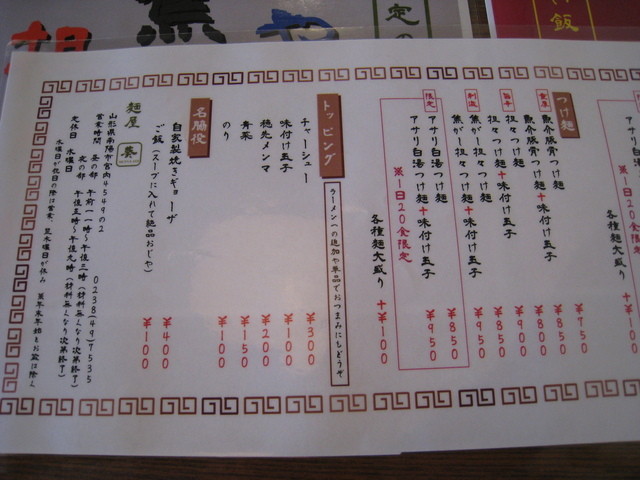 つけ麺
濃厚
魚介豚骨つけ麺 ¥750
魚介豚骨つけ麺+味付け玉子 ¥850
旨辛
担々つけ麺 ¥800
担々つけ麺+味付け玉子 ¥900
創造
焦がし担々つけ麺 ¥850
焦がし担々つけ麺+味付け玉子 ¥950
限定
アサリ白湯つけ麺 ¥850
アサリ白湯つけ麺+味付け玉子 ¥950
※1日20食限定
各種麺大盛り +¥100
トッピング
ラーメンへの追加や単品でおつまみにもどうぞ
チャーシュー ¥300
味付け玉子 ¥100
穂先メンマ ¥200
青菜 ¥150
のり ¥100
名脇役
自家製焼きギョーザ ¥400
ご飯(スープに入れて絶品おじや) ¥100
麺屋 葵
山形県南陽市宮内4549の2 0238(49)7535
営業時間 昼の部 午前一一時〜午後三時(材料無くなり次第終了)
夜の部 午後五時〜午後九時(材料無くなり次第終了)
定休日 水曜日
水曜日が祝日の際は営業、翌木曜日が休み 年末年始とお盆は除く